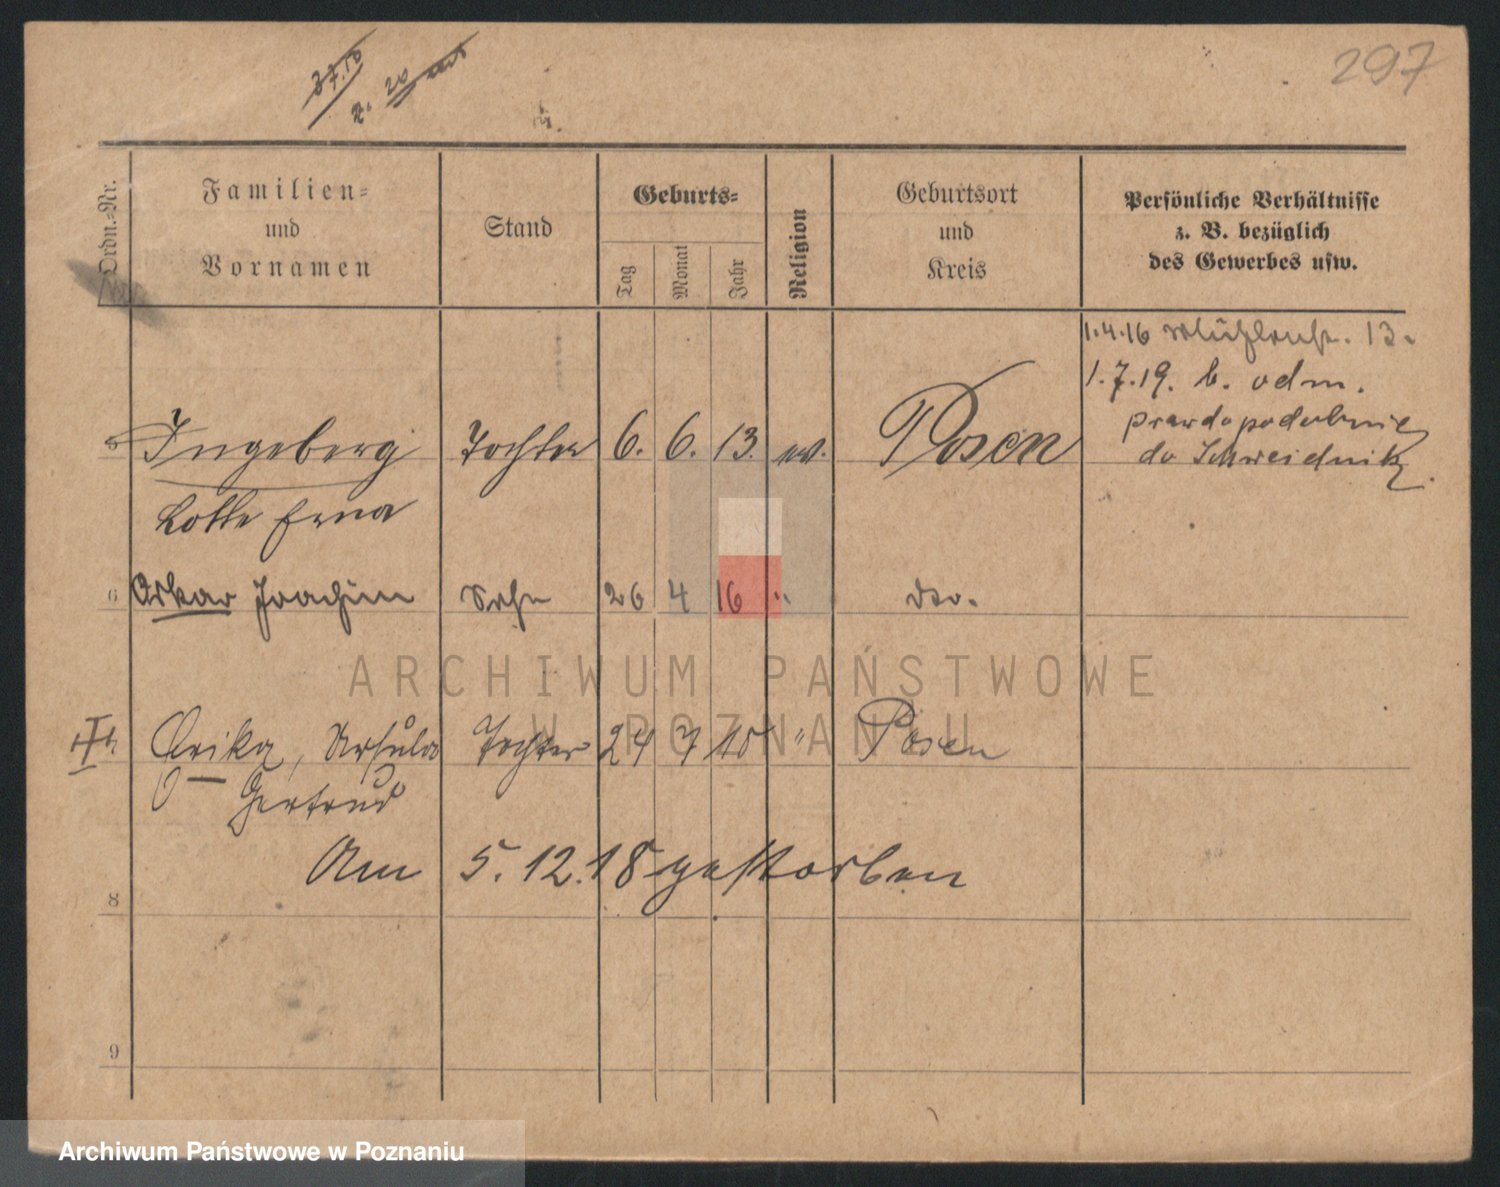 297
37.10
2. 20
Ordn.=Nr.
Familien=
und
Vornamen
Stand
Geburts=
Tag
Monat
Jahr
Religion
Geburtsort
und
Kreis
Persönliche Verhältnisse
z. B. bezüglich
des Gewerbes usw.
1.4.16 Mühlenstr. 13.
1.7.19. b. odm.
prawdopodobnie
do Schweidnitz.
5 Ingeberg Tochter 6. 6. 13. ev. Posen
Lotte Erna
6 Oskar Joachim Sohn 26 4 16 " do.
Erika, Ursula Tochter 24 7 18 " Posen
Gertrud
Am 5.12.18 gestorben
8
9
ARCHIWUM PAŃSTWOWE
W POZNANIU
Archiwum Państwowe w Poznaniu